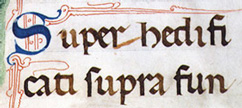 Super hedifi
cati supra fun